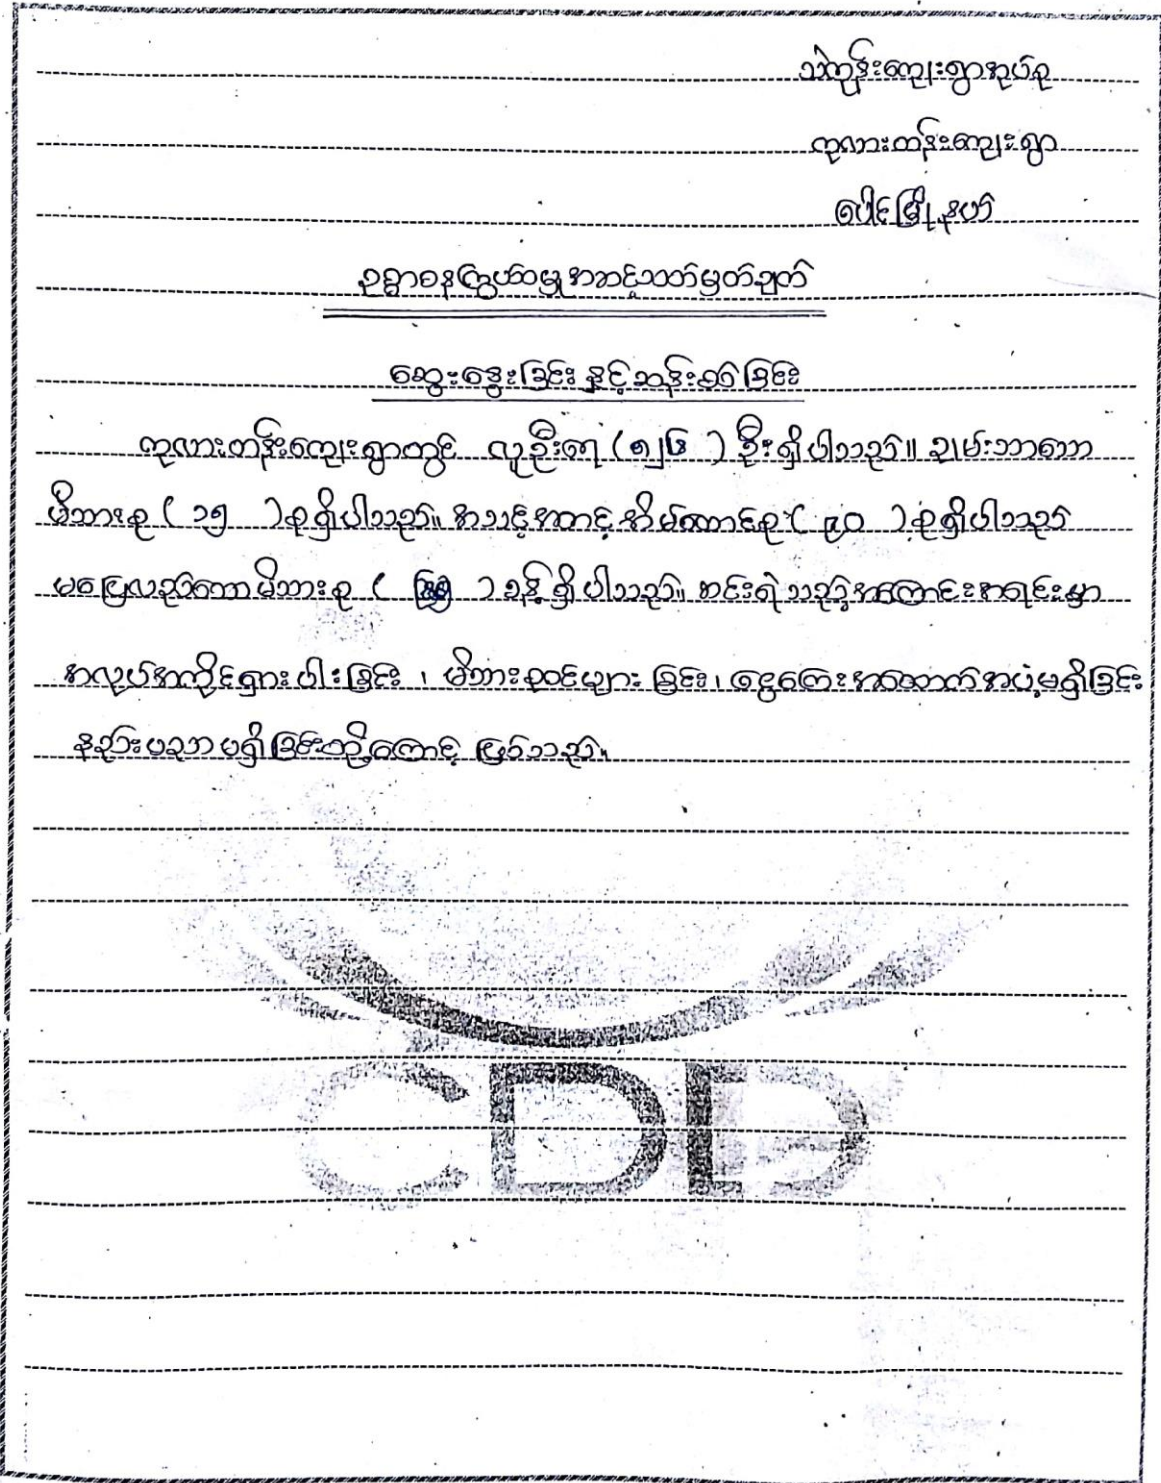 သဲကုန်းကျေးရွာအုပ်စု
ကုလားတန်းကျေးရွာ
ပေါင်မြို့နယ်
ဥစ္စာဓနကြွယ်ဝမှုအဆင့်သတ်မှတ်ချက်
ဆွေးနွေးခြင်းနှင့်ဆန်းစစ်ခြင်း
ကုလားတန်းကျေးရွာတွင် လူဦးရေ ( ) ဦးရှိပါသည်။ ချမ်းသာသော
မိသားစု ( ၁၅ ) စုရှိပါသည်။ အသင့်အတင့်အိမ်ထောင်စု ( ၉၀ ) စုရှိပါသည်
မပြေလည်သောမိသားစု ( ) ခန့်ရှိပါသည်။ ဆင်းရဲသည့်အကြောင်းအရင်းမှာ
အလုပ်အကိုင်ရှားပါးခြင်း၊ မိသားစုဝင်များခြင်း၊ ငွေကြေးအထောက်အပံ့မရှိခြင်း
နည်းပညာမရှိခြင်းတို့ကြောင့် ဖြစ်သည်။
CDD